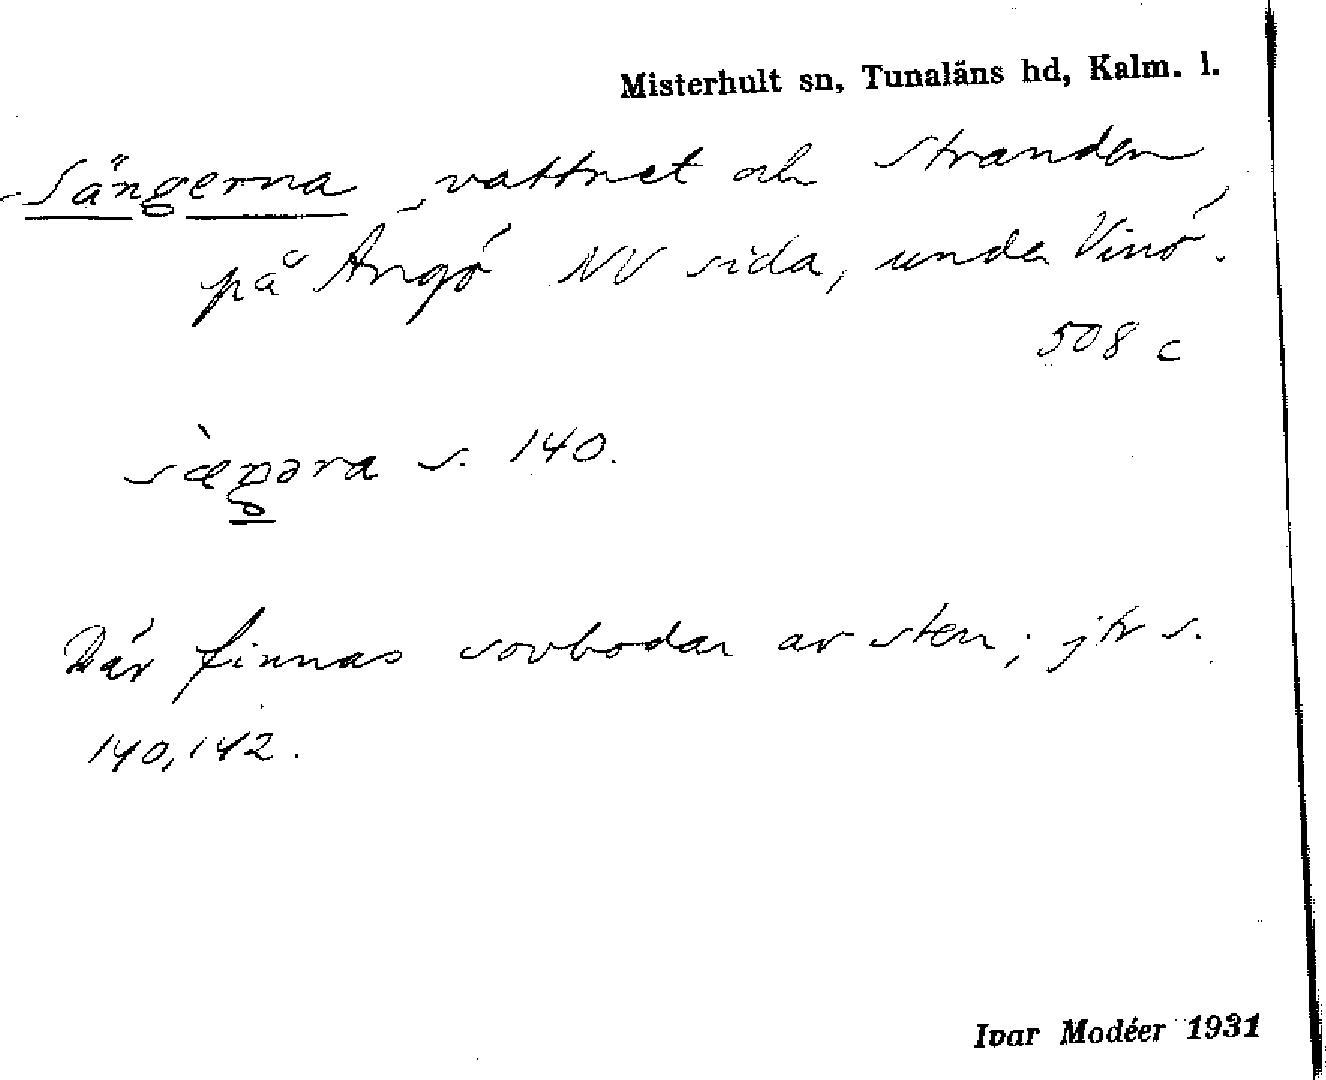 Misterhult sn, Tunaläns hd, Kalm. l.
Sängerna, vattnet och stranden
på Ängö NV sida, under Vinö.
508 c
s. 140.
Där finnas sovbodar av sten; jfr s.
140, 142.
Ivar Modéer 1931